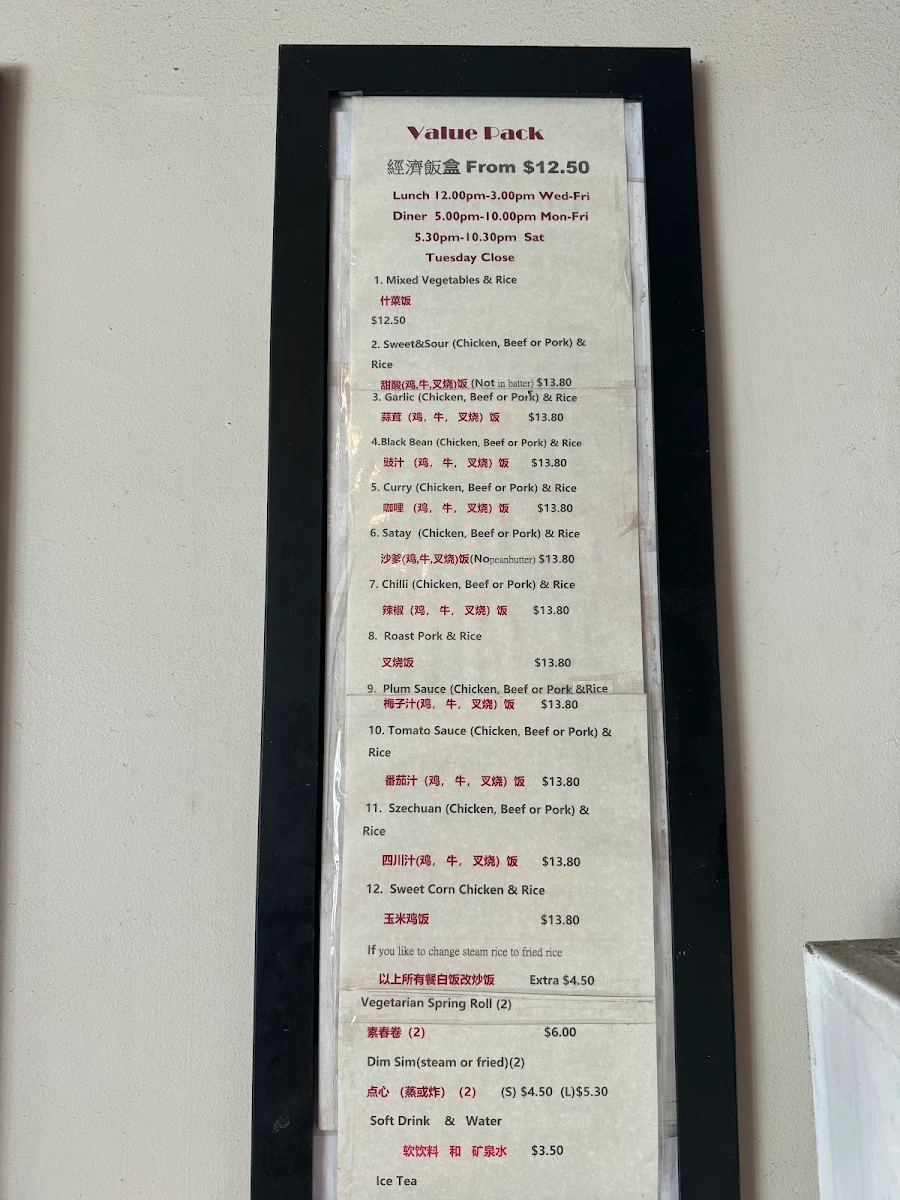 Value Pack
經濟飯盒 From $12.50
Lunch 12.00pm-3.00pm Wed-Fri
Diner 5.00pm-10.00pm Mon-Fri
5.30pm-10.30pm Sat
Tuesday Close
1. Mixed Vegetables & Rice
什菜饭
$12.50
2. Sweet&Sour (Chicken, Beef or Pork) &
Rice
甜酸(鸡,牛,叉烧)饭 (Not in batter) $13.80
3. Garlic (Chicken, Beef or Pork) & Rice
蒜茸（鸡，牛， 叉烧）饭 $13.80
4.Black Bean (Chicken, Beef or Pork) & Rice
豉汁 （鸡， 牛， 叉烧）饭 $13.80
5. Curry (Chicken, Beef or Pork) & Rice
咖哩 （鸡， 牛， 叉烧）饭 $13.80
6. Satay (Chicken, Beef or Pork) & Rice
沙爹(鸡,牛,叉烧)饭(Nopeanbutter) $13.80
7. Chilli (Chicken, Beef or Pork) & Rice
辣椒（鸡， 牛， 叉烧）饭 $13.80
8. Roast Pork & Rice
叉烧饭 $13.80
9. Plum Sauce (Chicken, Beef or Pork &Rice
梅子汁(鸡， 牛， 叉烧）饭 $13.80
10. Tomato Sauce (Chicken, Beef or Pork) &
Rice
番茄汁（鸡， 牛， 叉烧）饭 $13.80
11. Szechuan (Chicken, Beef or Pork) &
Rice
四川汁(鸡， 牛， 叉烧）饭 $13.80
12. Sweet Corn Chicken & Rice
玉米鸡饭 $13.80
If you like to change steam rice to fried rice
以上所有餐白饭改炒饭 Extra $4.50
Vegetarian Spring Roll (2)
素春卷（2） $6.00
Dim Sim(steam or fried)(2)
点心 （蒸或炸）（2） (S) $4.50 (L)$5.30
Soft Drink & Water
软饮料 和 矿泉水 $3.50
Ice Tea